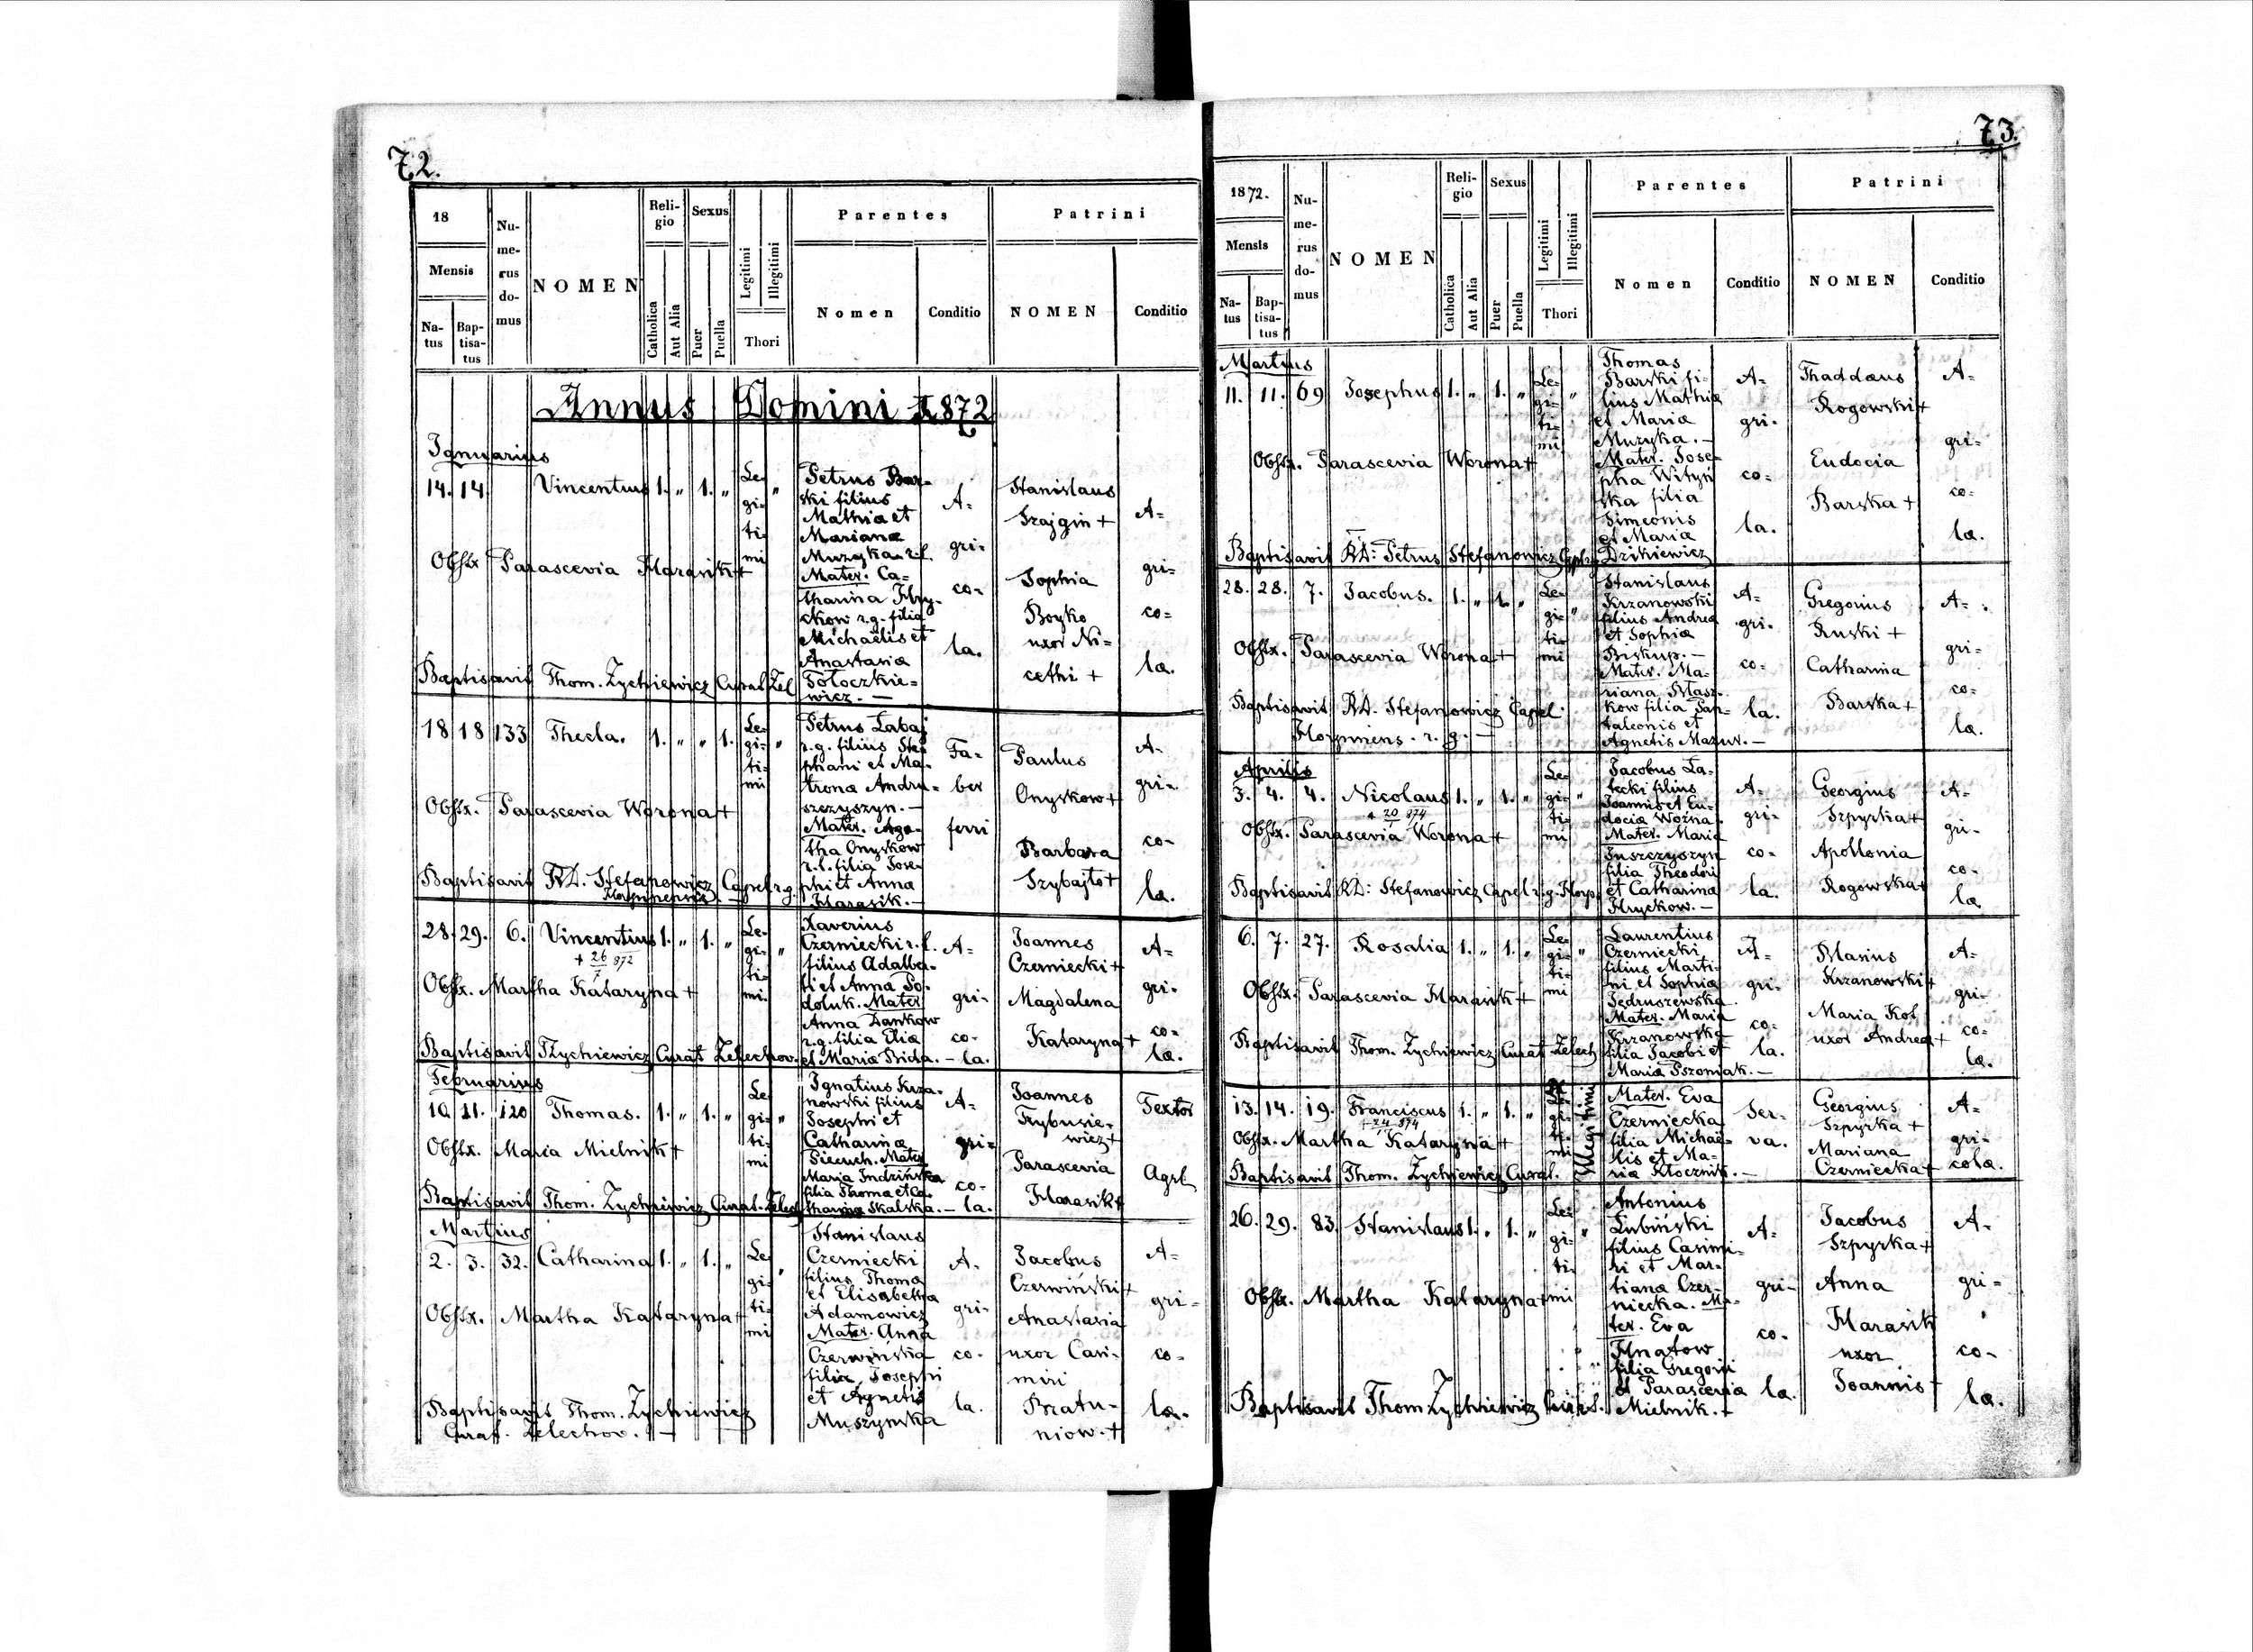 72.
18
Mensis
Natus
Baptisatus
Numerus domus
NOMEN
Religio
Catholica
Aut Alia
Sexus
Puer
Puella
Legitimi
Illegitimi
Thori
Parentes
Nomen
Conditio
Patrini
NOMEN
Conditio
Annus Domini 1872
Januarius
14. 14 Vincentius 1. „ 1. „
Le-
gi-
ti-
mi
„
Petrus Bar-
ski filius
Mathiæ et
Marianæ
Muzyka r.l.
Mater. Ca-
tharina Hry-
ckow r.g. filia
Michaëlis et
Anastasiæ
Tołoczkie-
wicz. —
A-
gri-
co-
la.
Stanislaus
Szajgin +
Sophia
Boyko
uxor Ni-
cethi +
A-
gri-
co-
læ.
Obstx Parascevia Harasik +
Baptisavit Thom. Zychiewicz Curat Zel
18 18 133 Thecla. 1. „ „ 1.
Le-
gi-
ti-
mi
„
Petrus Łabaj
r.g. filius Ste-
phani et Ma-
tronæ Andru-
szczyszyn. —
Mater. Aga-
tha Onyskow
r.l. filia Jose-
phi et Annæ
Harasik. —
Fa-
ber
ferri
Paulus
Onyskow +
Barbara
Szybajło +
A-
gri-
co-
læ.
Obstx. Parascevia Worona +
Baptisavit RD. Stefanowicz Capel r.g.
28 29. 6. Vincentius 1. „ 1. „
+ 26/7 872
Le-
gi-
ti-
mi.
„
Xaverius
Czerniecki r.l.
filius Adalber-
ti et Annæ Po-
doluk. Mater
Anna Dankow
r.g. filia Eliæ
et Mariæ Brida.
A-
gri-
co-
la.
Joannes
Czerniecki +
Magdalena
Kataryna +
A-
gri-
co-
læ.
Obstx. Martha Kataryna +
Baptisavit TZychiewicz Curat Zelechow.
Februarius
10. 11. 120 Thomas. 1. „ 1. „
Le
gi-
ti-
mi
„
Ignatius Krza-
nowski filius
Josephi et
Catharinæ
Piecuch. Mater
Maria Indzińska
filia Thomæ et Ca-
tharinæ Skalska.
A-
gri-
co-
la.
Joannes
Trybusie-
wicz +
Parascevia
Harasik +
Textor
Agrl
Obstx. Maria Mielnik +
Baptisavit Thom. Zychiewicz Curat. Zelec
Martius
2. 3. 32. Catharina 1. „ 1. „
Le-
gi-
ti-
mi
„
Stanislaus
Czerniecki
filius Thomæ
et Elisabetha
Adamowicz
Mater. Anna
Czerwińska
filia Josephi
et Agnetis
Muszynska
A-
gri-
co-
la.
Jacobus
Czerwiński +
Anastasia
uxor Casi-
miri
Bratu-
niow. +
A-
gri-
co-
læ.
Obstx. Martha Kataryna +
Baptisavit Thom. Zychiewicz
Curat. Zelechov. —
73.
1872.
Mensis
Natus
Baptisatus
Numerus domus
NOMEN
Religio
Catholica
Aut Alia
Sexus
Puer
Puella
Legitimi
Illegitimi
Thori
Parentes
Nomen
Conditio
Patrini
NOMEN
Conditio
Martius
11. 11. 69 Josephus 1. „ 1. „
Le-
gi-
ti-
mi
„
Thomas
Barski fi-
lius Mathiæ
et Mariæ
Muzyka. —
Mater. Jose-
pha Wityń
ska filia
Simeonis
et Mariæ
Drikiewicz
A-
gri-
co-
la.
Thaddæus
Rogowski +
Eudocia
Barska +
A-
gri-
co-
læ.
Obstx. Parascevia Worona +
Baptisavit RD: Petrus Stefanowicz
28. 28. 7. Jacobus. 1. „ 1. „
Le-
gi-
ti-
mi
„
Stanislaus
Krzanowski
filius Andreæ
et Sophiæ
Biskup. —
Mater. Ma-
riana Błasz-
kow filia Pan-
taleonis et
Agnetis Mazur. —
A-
gri-
co-
la.
Gregorius
Ruski +
Catharina
Barska +
A-
gri-
co-
la.
Obstx. Parascevia Worona +
Baptisavit RD. Stefanowicz Capel
r. g. —
Aprilis
3. 4. 4. Nicolaus 1. „ 1. „
Le-
gi-
ti-
mi
„
Jacobus Ła-
tecki filius
Joannis et Eu-
dociæ Wożna.
Mater. Maria
Juszczyszyn
filia Theodori
et Catharinæ
Hryckow. —
A-
gri-
co-
la.
Georgius
Szpyrka +
Apollonia
Rogowska +
A-
gri-
co-
læ
Obstx. Parascevia Worona +
Baptisavit RD: Stefanowicz Capel r.g.
6. 7. 27. Rosalia 1. „ 1. „
Le-
gi-
ti-
mi
„
Laurentius
Czerniecki
filius Marti-
ni et Sophiæ
Jedruszewska.
Mater. Maria
Krzanowska
filia Jacobi et
Mariæ Pszoniak. —
A-
gri-
co-
la.
Blasius
Krzanowski +
Maria Kot
uxor Andreæ +
A-
gri-
co-
læ.
Obstx. Parascevia Harasik +
Baptisavit Thom. Zychiewicz Curat Zelech
13. 14. 19. Franciscus 1. „ 1. „
Illegitimi
Mater. Eva
Czerniecka
filia Michaë-
lis et Ma-
riæ Kłocznik. —
Ser-
va.
Georgius
Szpyrka +
Mariana
Czerniecka +
A-
gri-
colæ.
Obstx. Martha Kataryna +
Baptisavit Thom. Zychiewicz Curat.
26. 29. 83. Stanislaus 1. „ 1. „
Le-
gi-
ti-
mi
„
Antonius
Łubiński
filius Casimi-
ri et Mar-
tianæ Czer-
niecka. Ma-
ter. Eva
Hnatow
filia Gregorii
et Parasceviæ
Mielnik. +
A-
gri-
co-
la.
Jacobus
Szpyrka +
Anna
Harasik
uxor
Joannis +
A-
gri-
co-
læ.
Obstx. Martha Kataryna +
Baptisavit Thom Zychiewicz